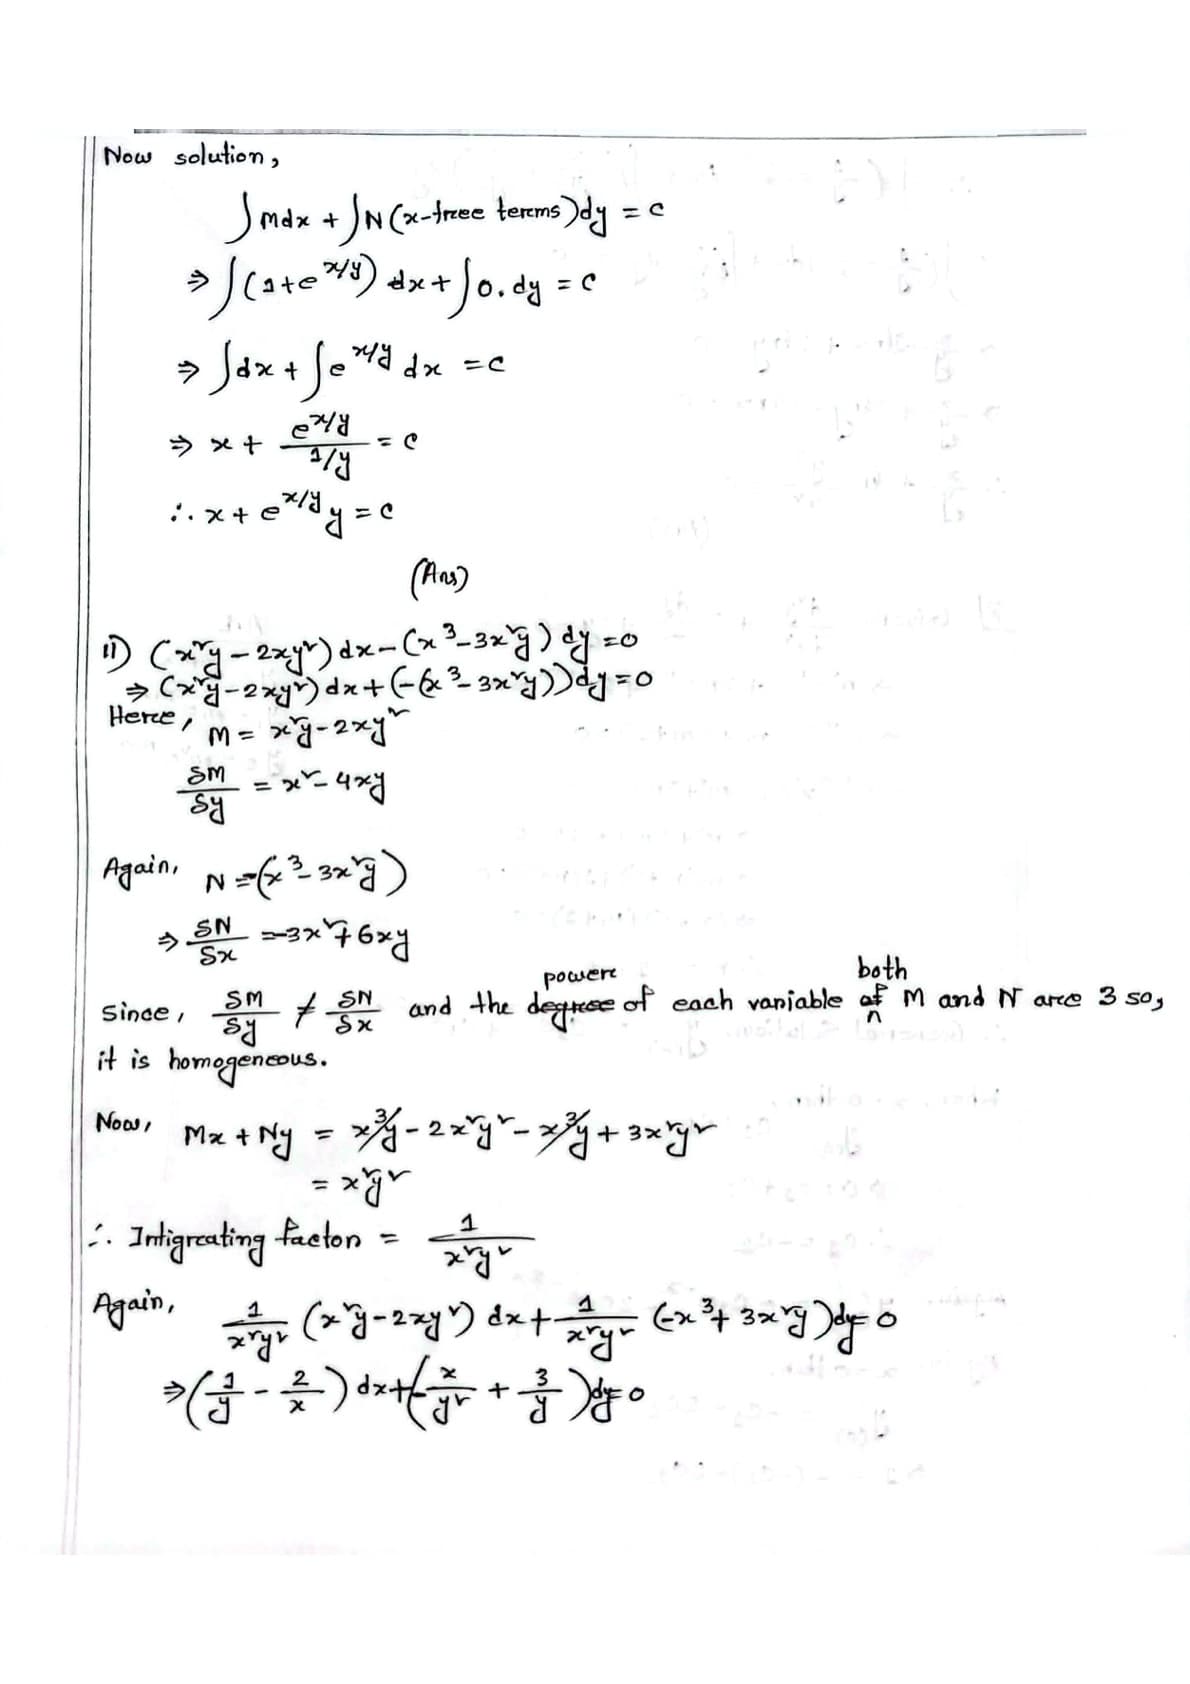 Now solution,
∫Mdx + ∫N(x-free terms)dy = c
⇒ ∫(1+e^{x/y}) dx + ∫0.dy = c
⇒ ∫dx + ∫e^{x/y} dx = c
⇒ x + e^{x/y}/(1/y) = c
∴ x + e^{x/y} y = c
(Ans)
11) (x²y - 2xy²)dx - (x³ - 3x²y)dy = 0
⇒ (x²y - 2xy²)dx + (-(x³ - 3x²y))dy = 0
Here, M = x²y - 2xy²
δM/δy = x² - 4xy
Again, N = -(x³ - 3x²y)
⇒ δN/δx = -3x² + 6xy
since, δM/δy ≠ δN/δx and the power of each variable of both M and N are 3 so,
it is homogeneous.
Now, Mx + Ny = x³y - 2x²y² - x³y + 3x²y²
= x²y²
∴ Intigrating factor = 1/(x²y²)
Again, 1/(x²y²) (x²y - 2xy²) dx + 1/(x²y²) (-x³ + 3x²y)dy = 0
⇒ (1/y - 2/x) dx + (-x/y² + 3/y)dy = 0